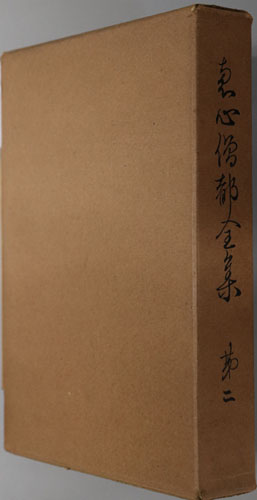 恵心僧都全集 第二